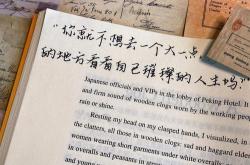 “你就不想去一个大一点
的地方看看自己璀璨的人生吗?
Japanese officials and VIPs in the lobby of Peking Hotel.
and firm sound of wooden clogs worn by the working people
rain or shine.
Resting my head on my clasped hands, I visualized,
the clatters, all those in wooden clogs: sad and
women wearing short garments, some white
in overalls and peasants in